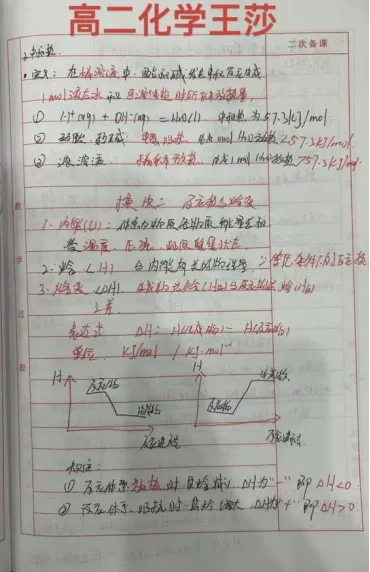 高二化学王莎
二次备课
2. 中和热
• 定义: 在稀溶液中, 强酸和强碱发生中和反应生成
1mol液态水和可溶性盐时所释放热量,
① H⁺(aq) + OH⁻(aq) = H₂O(l) 中和热为57.3kJ/mol.
② 弱酸、弱碱: 电离吸热, 生成1mol H₂O放热<57.3kJ/mol.
③ 浓溶液 稀释放热, 生成1mol H₂O放热>57.3kJ/mol
模块二 反应热与焓变
1. 内能(U): 体系内物质
受温度、压强、物质聚集状态
2. 焓 (H) 与内能有关的物理量
3. 焓变 (ΔH) 生成物总焓(H生)与反应物总焓(H反)
之差
表达式 ΔH= H(生成物) - H(反应物)
单位 kJ/mol / kJ·mol⁻¹
H
反应物
生成物
反应进程
H
生成物
反应物
反应进程
① 反应体系放热时其焓减小 ΔH为"-" 即ΔH<0
② 反应体系吸热时其焓增大 ΔH为"+" 即ΔH>0.
教
学
过
程